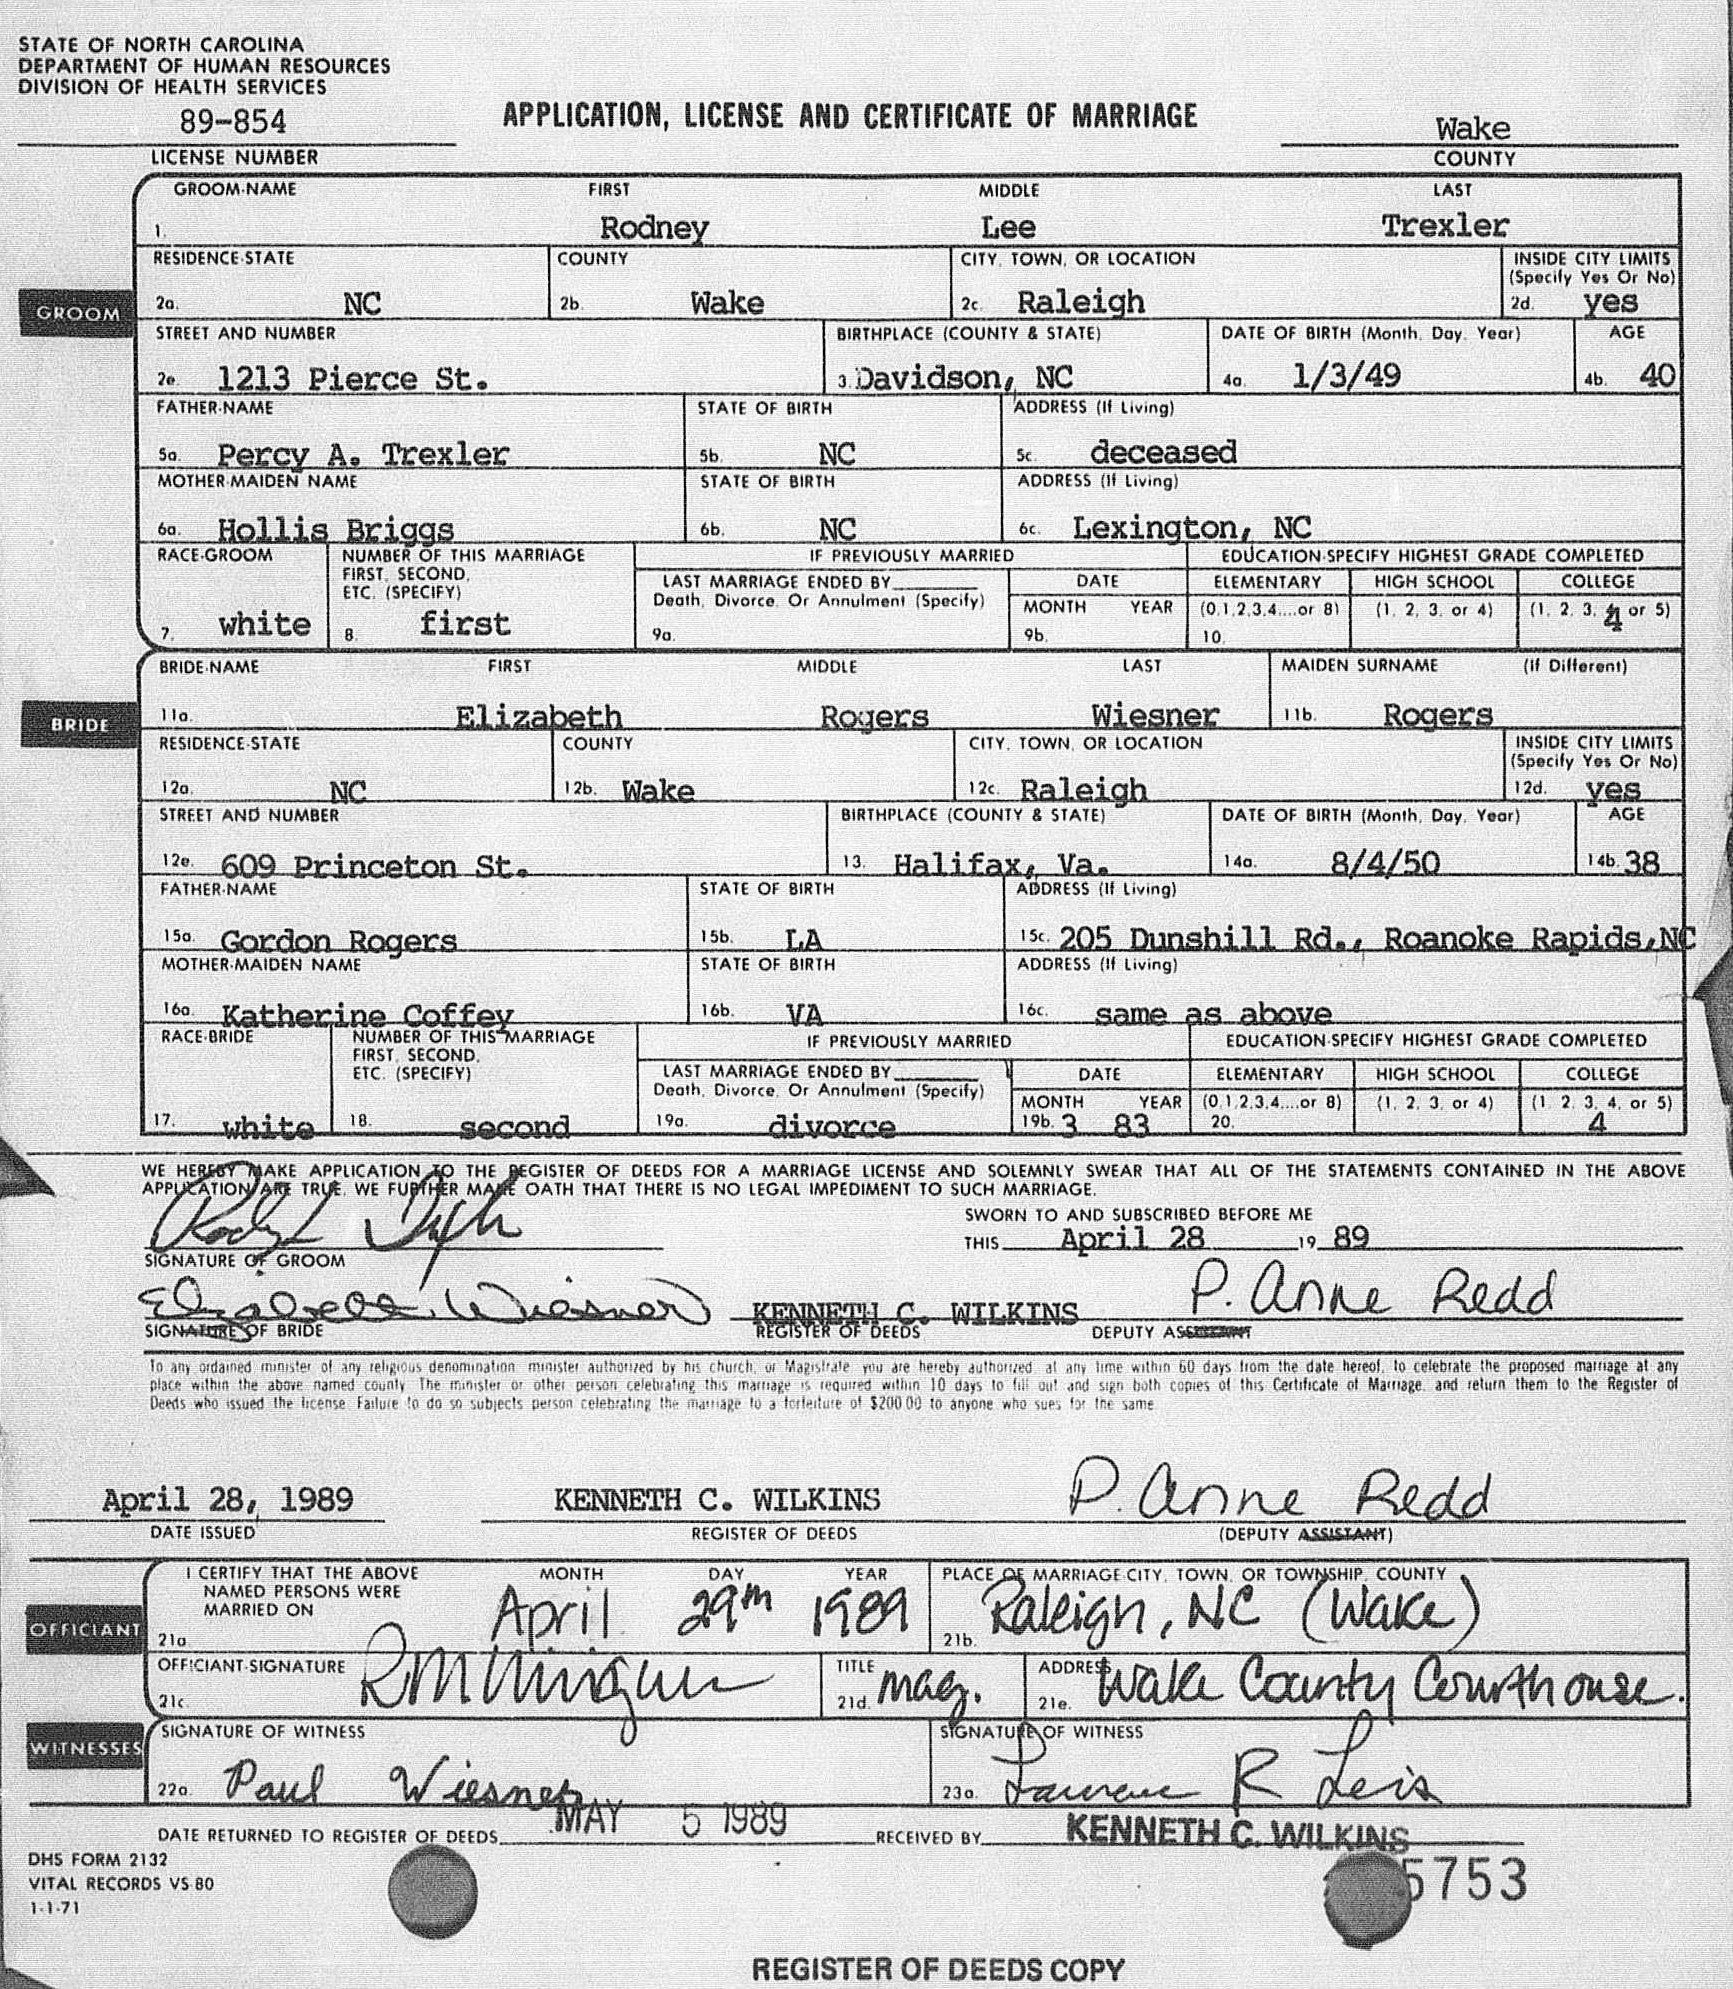 STATE OF NORTH CAROLINA
DEPARTMENT OF HUMAN RESOURCES
DIVISION OF HEALTH SERVICES
89-854
LICENSE NUMBER
APPLICATION, LICENSE AND CERTIFICATE OF MARRIAGE
Wake
COUNTY
GROOM-NAME FIRST MIDDLE LAST
1. Rodney Lee Trexler
GROOM
RESIDENCE-STATE COUNTY CITY, TOWN, OR LOCATION INSIDE CITY LIMITS
(Specify Yes Or No)
2a. NC 2b. Wake 2c. Raleigh 2d. yes
STREET AND NUMBER BIRTHPLACE (COUNTY & STATE) DATE OF BIRTH (Month, Day, Year) AGE
2e. 1213 Pierce St. 3. Davidson, NC 4a. 1/3/49 4b. 40
FATHER-NAME STATE OF BIRTH ADDRESS (If Living)
5a. Percy A. Trexler 5b. NC 5c. deceased
MOTHER-MAIDEN NAME STATE OF BIRTH ADDRESS (If Living)
6a. Hollis Briggs 6b. NC 6c. Lexington, NC
RACE-GROOM NUMBER OF THIS MARRIAGE IF PREVIOUSLY MARRIED EDUCATION-SPECIFY HIGHEST GRADE COMPLETED
FIRST, SECOND, LAST MARRIAGE ENDED BY DATE ELEMENTARY HIGH SCHOOL COLLEGE
ETC. (SPECIFY) Death, Divorce, Or Annulment (Specify) MONTH YEAR (0,1,2,3,4,...or 8) (1, 2, 3, or 4) (1, 2, 3, 4, or 5)
7. white 8. first 9a. 9b. 10. 4
BRIDE-NAME FIRST MIDDLE LAST MAIDEN SURNAME (If Different)
BRIDE
11a. Elizabeth Rogers Wiesner 11b. Rogers
RESIDENCE-STATE COUNTY CITY, TOWN, OR LOCATION INSIDE CITY LIMITS
(Specify Yes Or No)
12a. NC 12b. Wake 12c. Raleigh 12d. yes
STREET AND NUMBER BIRTHPLACE (COUNTY & STATE) DATE OF BIRTH (Month, Day, Year) AGE
12e. 609 Princeton St. 13. Halifax, Va. 14a. 8/4/50 14b. 38
FATHER-NAME STATE OF BIRTH ADDRESS (If Living)
15a. Gordon Rogers 15b. LA 15c. 205 Dunshill Rd., Roanoke Rapids,NC
MOTHER-MAIDEN NAME STATE OF BIRTH ADDRESS (If Living)
16a. Katherine Coffey 16b. VA 16c. same as above
RACE-BRIDE NUMBER OF THIS MARRIAGE IF PREVIOUSLY MARRIED EDUCATION-SPECIFY HIGHEST GRADE COMPLETED
FIRST, SECOND, LAST MARRIAGE ENDED BY DATE ELEMENTARY HIGH SCHOOL COLLEGE
ETC. (SPECIFY) Death, Divorce, Or Annulment (Specify) MONTH YEAR (0,1,2,3,4,...or 8) (1, 2, 3, or 4) (1, 2, 3, 4, or 5)
17. white 18. second 19a. divorce 19b. 3 83 20. 4
WE HEREBY MAKE APPLICATION TO THE REGISTER OF DEEDS FOR A MARRIAGE LICENSE AND SOLEMNLY SWEAR THAT ALL OF THE STATEMENTS CONTAINED IN THE ABOVE
APPLICATION ARE TRUE. WE FURTHER MAKE OATH THAT THERE IS NO LEGAL IMPEDIMENT TO SUCH MARRIAGE.
SWORN TO AND SUBSCRIBED BEFORE ME
THIS April 28 19 89
SIGNATURE OF GROOM
Elizabeth Wiesner KENNETH C. WILKINS P. Anne Redd
SIGNATURE OF BRIDE REGISTER OF DEEDS DEPUTY ASSISTANT
To any ordained minister of any religious denomination, minister authorized by his church, or Magistrate you are hereby authorized, at any time within 60 days from the date hereof, to celebrate the proposed marriage at any
place within the above named county The minister or other person celebrating this marriage is required within 10 days to fill out and sign both copies of this Certificate of Marriage, and return them to the Register of
Deeds who issued the license Failure to do so subjects person celebrating the marriage to a forfeiture of $200.00 to anyone who sues for the same
April 28, 1989 KENNETH C. WILKINS P. Anne Redd
DATE ISSUED REGISTER OF DEEDS (DEPUTY ASSISTANT)
OFFICIANT
I CERTIFY THAT THE ABOVE NAMED PERSONS WERE MARRIED ON MONTH DAY YEAR PLACE OF MARRIAGE-CITY, TOWN, OR TOWNSHIP, COUNTY
21a April 29th 1989 21b. Raleigh, NC (Wake)
OFFICIANT-SIGNATURE TITLE ADDRESS
21c. 21d. mag. 21e. Wake County Courthouse.
WITNESSES
SIGNATURE OF WITNESS SIGNATURE OF WITNESS
22a. Paul Wiesner 23a. R Leis
DATE RETURNED TO REGISTER OF DEEDS MAY 5 1989 RECEIVED BY KENNETH C. WILKINS
DHS FORM 2132
VITAL RECORDS VS 80
1-1-71
5753
REGISTER OF DEEDS COPY